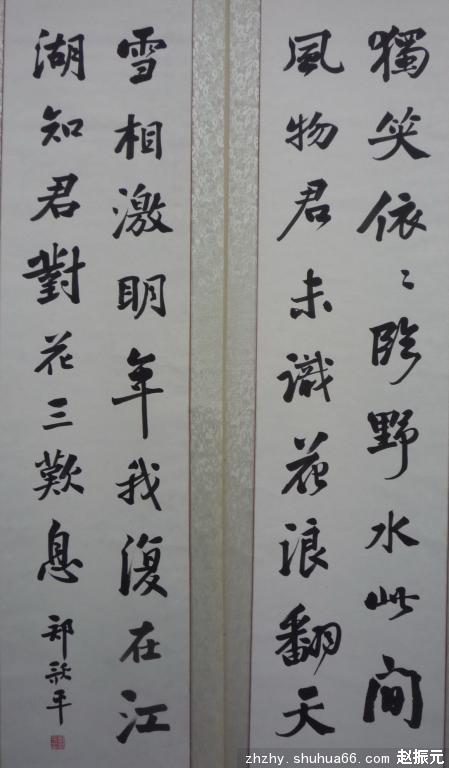 獨笑依〻臨野水此間
風物君未識花浪翻天
雪相激明年我復在江
湖知君對花三歎息
郑平
zhzhy.shuhua66.com 赵振元